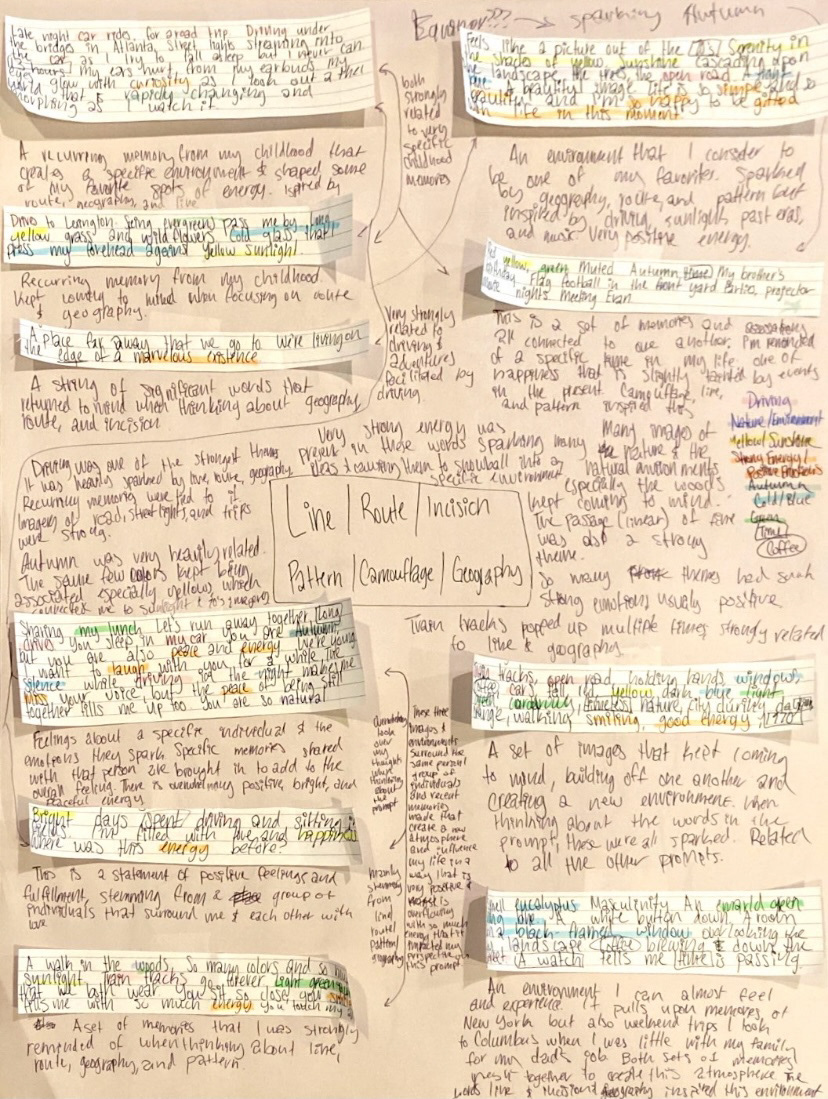 Late night car rides, for a road trip. Driving under
the bridges in Atlanta, street lights streaming into
the car as I try to fall asleep but I never can.
hours! my ears hurt from my earbuds my
world glow with curiosity as I look out a the
that is rapidly changing and
as I watch it
A recurring memory from my childhood that
creates a specific environment & shaped some
of my favorite spots of energy. Ispired by
route, geography, and line
Drives to Lexington. Seing evergreens pass me by long
yellow grass and wild flowers Cold glass, that I
press my forehead against Yellow sunlight
Recurring memory from my childhood.
Kept coming to mind when focusing on route
& geography.
A place far away that we go to We're living on
the edge of a marvelous existence
A string of significant words that
returned to mind when thinking about geography,
route, and incision
both
strongly
related
to very
specific
childhood
memories
Very strongly
related to
driving &
adventures
facilitated by
driving
Equanor??? → sparking Autumn
Feels like a picture out of the Serenity in
the shades of yellow. Sunshine cascading upon
the landscape, the trees, the open road. A
A beautiful image life is so simple and so
beautiful and I'm so happy to be gifted
life in this moment
An environment that I consider to
be one of my favorites. Sparked
by geography, route, and pattern but
inspired by driving, sunlight, past eras,
and music Very positive energy.
yellow, green Muted Autumn My brother's
birthday Flag football in the front yard Parties, projector
nights Meeting Evan
This is a set of memories and
all connected to one another. I'm reminded
of a specific time in my life one of
happiness that is slightly tainted by events
in the present Camouflage, line,
and pattern inspired this
Driving
Nature/Environment
Yellow/Sunshine
Strong Energy/
Positive Emotions
Autumn
Cold/Blue
Green
Time
Coffee
Driving was one of the strongest themes
It was heavily sparked by line, route, geography
Recurring memories were tied to it
Imagery of road, street lights, and trips
were strong.
Autumn was very heavily related.
The same few colors kept being
associated especially yellows which
connected me to sunlight & its imagery
Very strong energy was
present in these words sparking many
ideas & causing them to snowball into a
specific environment
Many images of
nature & the
natural environments
especially the woods
kept coming to mind.
The passage (linear) of time
was also a strong
theme.
So many themes had such
strong emotions usually positive
Line / Route / Incision
Pattern / Camouflage / Geography
Train tracks popped up multiple times strongly related
to line & geography
Sharing my lunch Let's run away together, long
drives You sleep in my car You are Autumn,
but you are also peace and energy We're young
I want to laugh with you for a while
Silence while driving in the night makes me
miss your voice, but the peace of being still
together fills me up too You are so natural
Feelings about a specific individual & the
emotions they spark. Specific memories shared
with that person are brought in to add to the
overall feeling. There is overwhelming positive, bright, and
peaceful energy
Bright days spent driving and sitting in
I'm filled with love and happiness
Where was this energy before?
This is a statement of positive feelings and
fulfillment, stemming from a group of
individuals that surround me & each other with
love
A walk in the woods. So many colors and so
sunlight Train tracks go forever Light green
that we both wear You sit so close you
fills me with so much energy you touch my
A set of memories that I was strongly
reminded of when thinking about line,
route, geography, and pattern.
look
over
my
thoughts
when
thinking
about the
prompt
mainly
stemming
from
line/
route/
pattern/
geography
These three
images &
environments
surround the
same personal
group of
individuals
and recent
memories
made that
create a new
atmosphere
and influence
my life in a
way that is
very positive &
overflowing
with so much
energy that it
impacted my
perspective on
this prompt
tracks, open road, holding hands, window,
car, fall, red, yellow, dark blue, light
timeless nature, city during day
orange, walking, smiling, good energy,
A set of images that kept coming
to mind, building off one another and
creating a new environment. When
thinking about the words in the
prompt, these were all sparked. Related
to all the other prompts.
eucalyptus Masculinity An emerald green
A white button down. A room
black framed window overlooking the
landscape Coffee brewing & down the
A watch tells me time is passing.
An environment I can almost feel
and experience. It pulls upon memories of
New York but also weekend trips I took
to Columbus when I was little with my family
for my dad's job. Both sets of memories
together to create this atmosphere The
words line & incision/geography inspired this environment